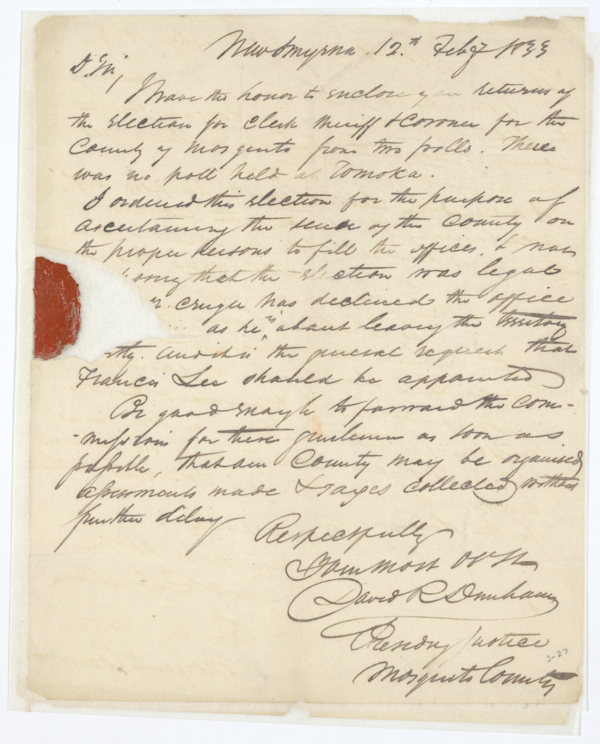 New Smyrna. 12.th Feby 1833
D. Sir,
I have the honor to enclose you returns of
the Election for Clerk Sheriff & Coroner for the
County of Mosquito from two polls. There
was no poll held at Tomoka.
I ordered this election for the purpose of
ascertaining the sense of the County on
the proper persons to fill the offices, & not
that the Election was legal
Cruger has declined the office
as he is about leaving the Territory
and it is the general request that
Francis Lee should be appointed
Be good enough to forward the com-
-missions for these gentlemen as soon as
possible, that our County may be organised,
assessments made & taxes collected without
further delay
Respectfully
Your most Obt St
David R Dunham
Presiding Justice
Mosquito County